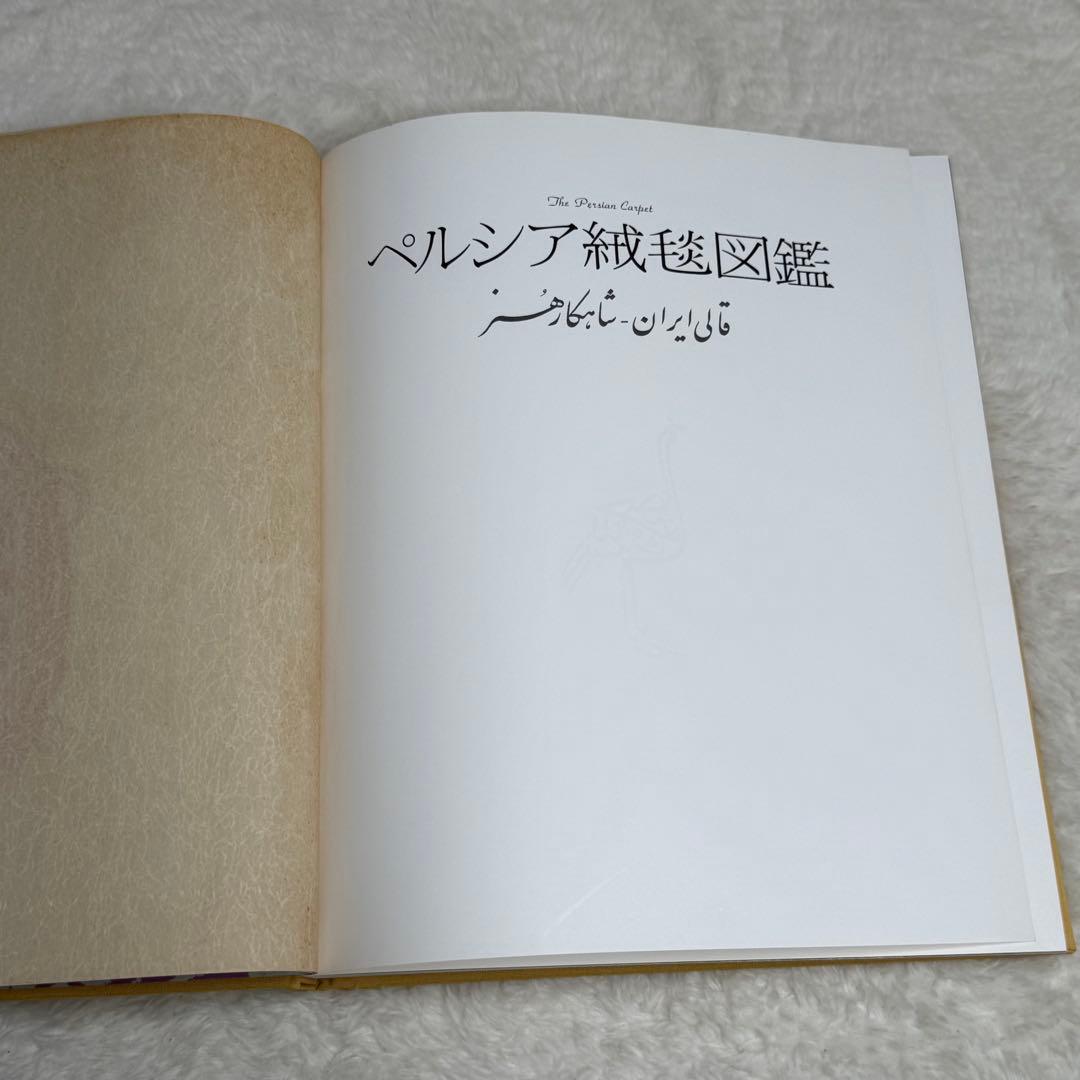 The Persian Carpet
ペルシア絨毯図鑑
قالی ایران - شاهکار هُنر